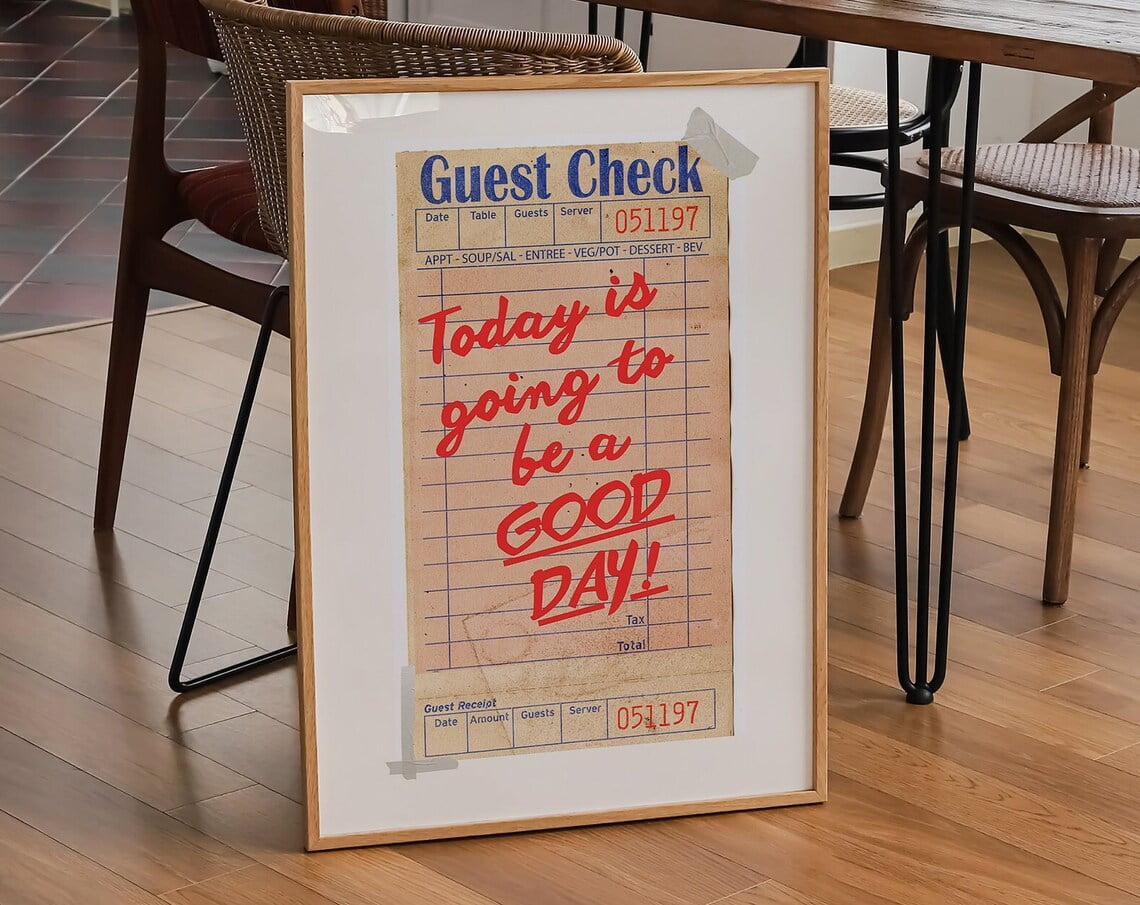 Guest Check
Date Table Guests Server 051197
APPT - SOUP/SAL - ENTREE - VEG/POT - DESSERT - BEV
Today is
going to
be a
GOOD
DAY!
Tax
Total
Guest Receipt
Date Amount Guests Server 051197